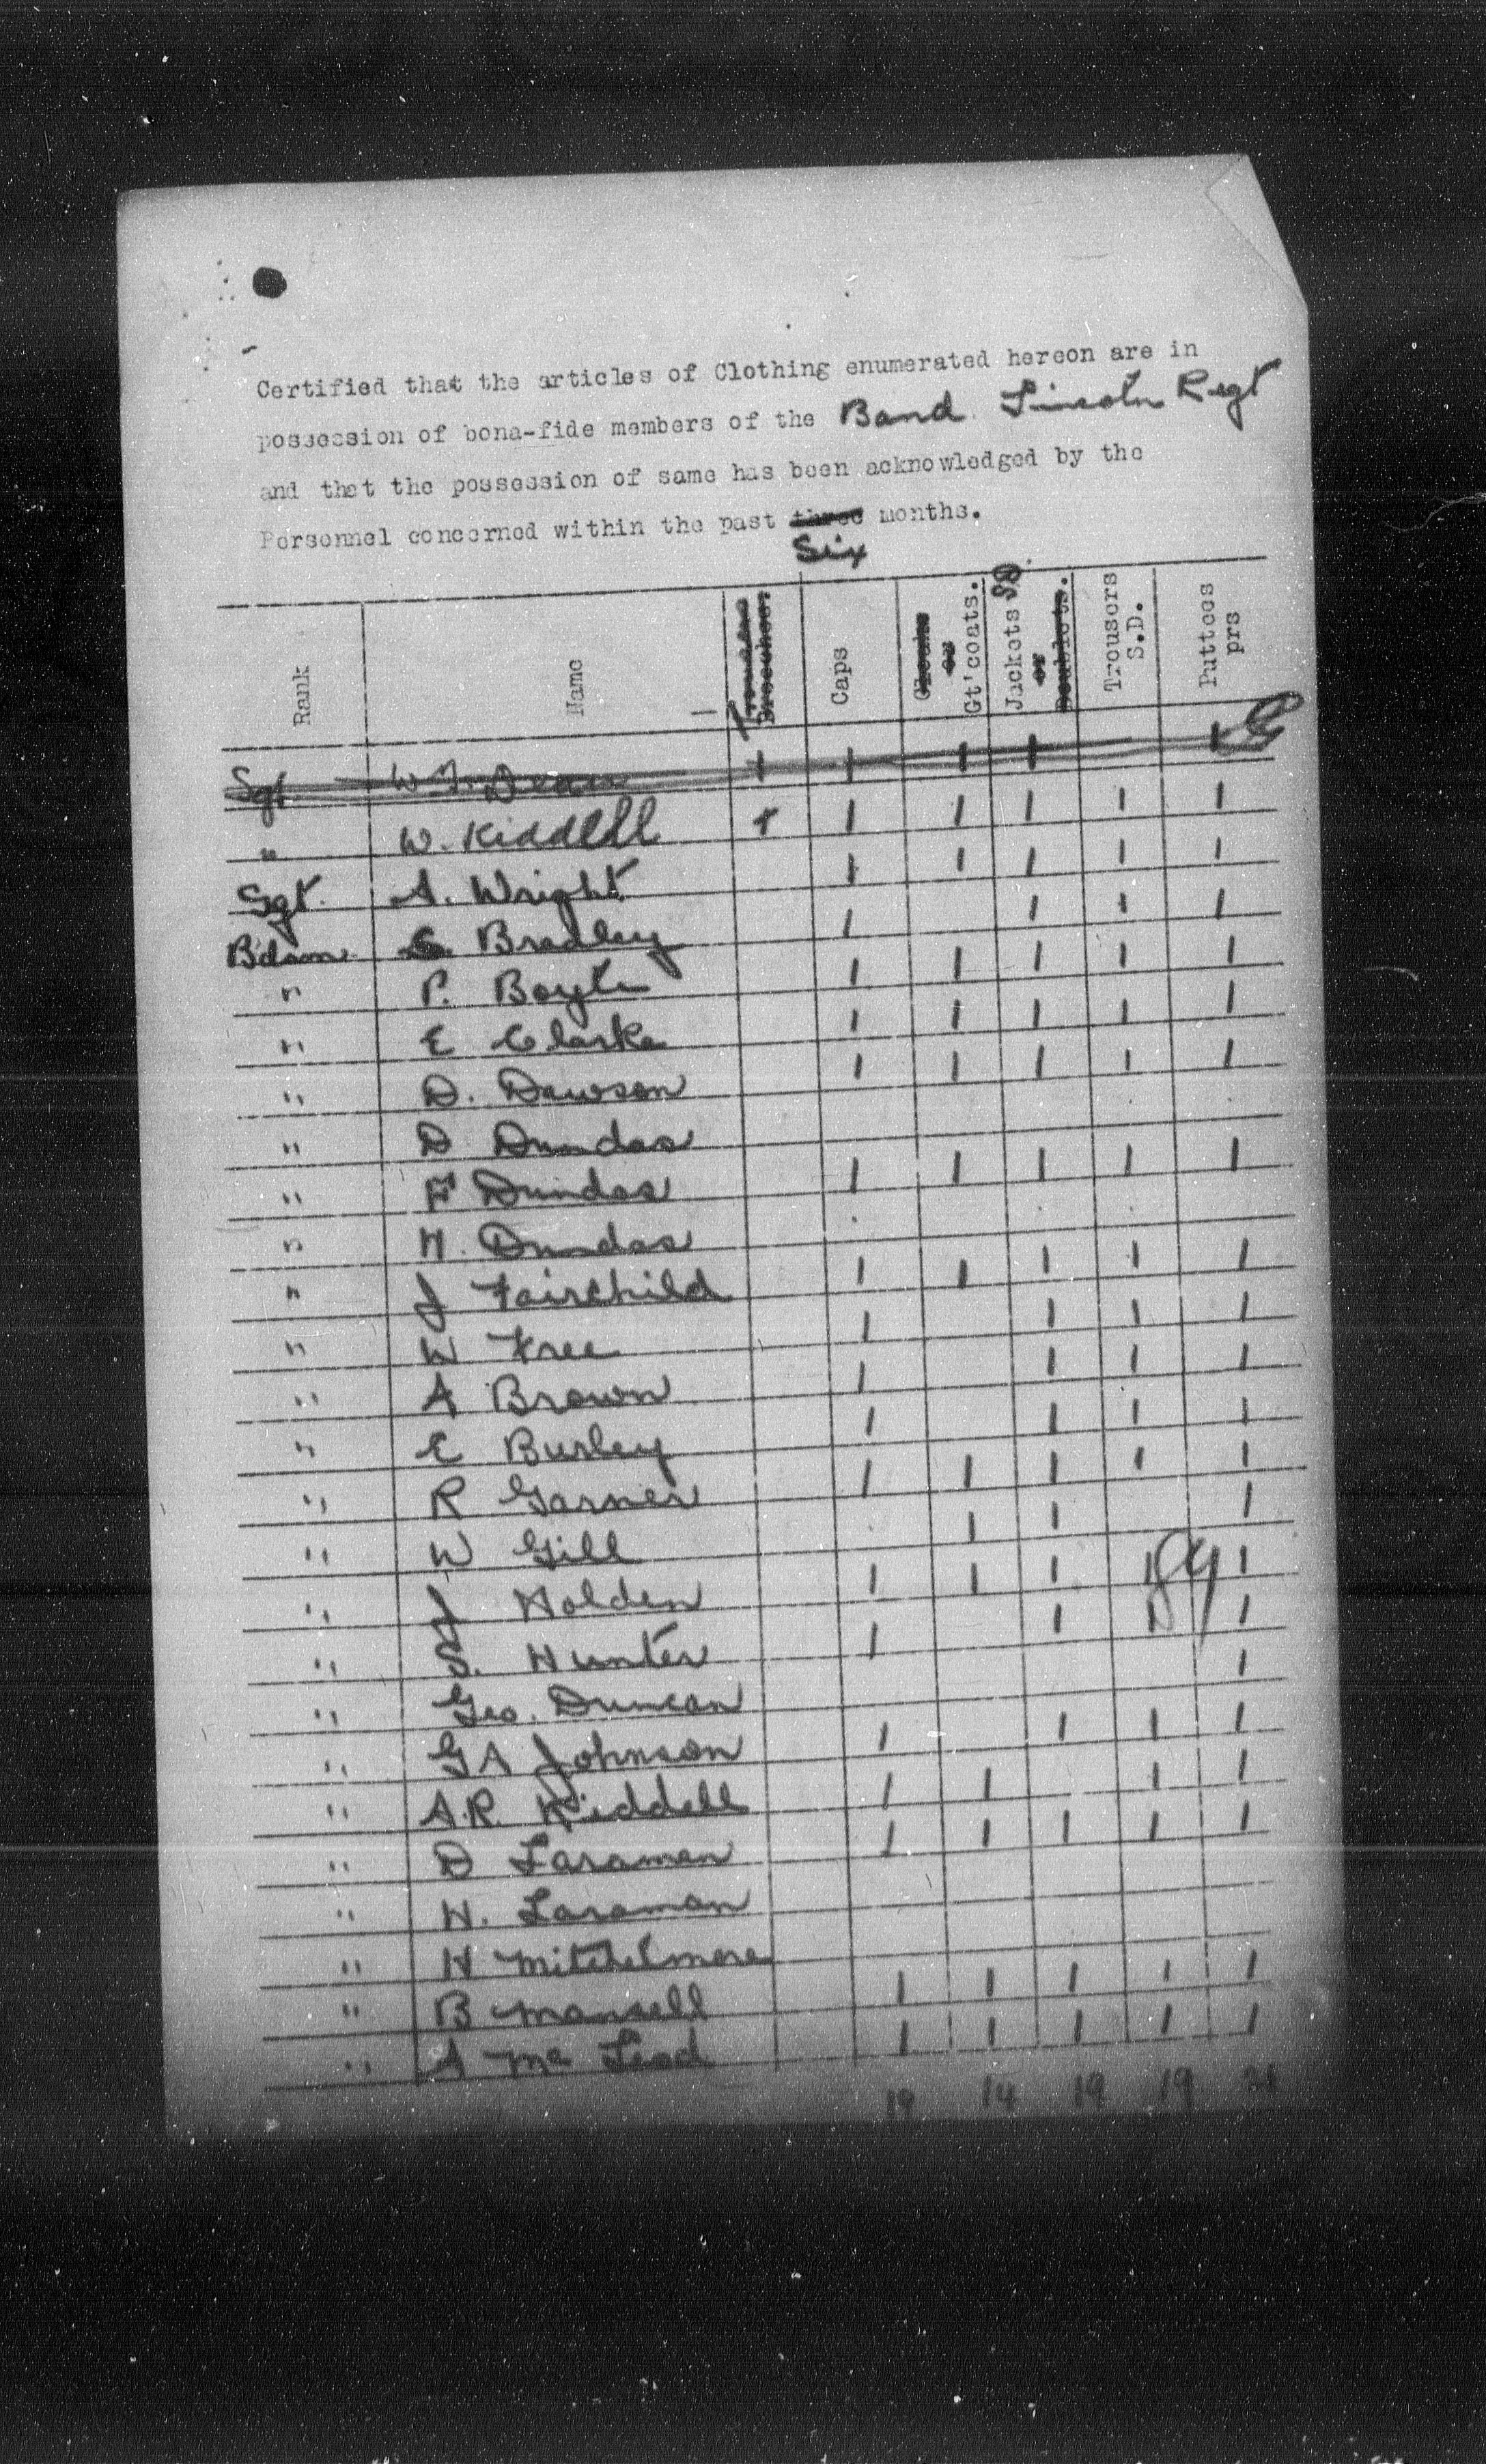 Certified that the articles of Clothing enumerated hereon are in
possession of bona-fide members of the Band Lincoln Regt
and that the possession of same has been acknowledged by the
Personnel concerned within the past three months.
Six
Rank Name Trousers Breeches. Caps Cloaks or Gt'coats. Jackets SD or Doublets. Trousers S.D. Puttees prs
Sgt. W. Dean 1 1 1 1 1
" W. Kiddell + 1 1 1 1 1
Sgt. A. Wright 1 1 1 1 1
Bdsm. Bradley 1 1 1 1
" P. Boyle 1 1 1 1 1
" E Clarke 1 1 1 1 1
" D. Dawson 1 1 1 1 1
" D Dundas
" F Dundas 1 1 1 1 1
" H. Dundas
" J Fairchild 1 1 1 1 1
" W Free 1 1 1 1
" A Brown 1 1 1 1
" E Burley 1 1 1 1
" R Garner 1 1 1 1 1
" W Gill 1 1 1
" J Holden 1 1 1 1 1
" S. Hunter 1 1 1 1
" Geo. Duncan 1
" GA Johnson 1 1 1 1
" A.R. Kiddell 1 1 1 1
" D Laraman 1 1 1 1 1
" H. Laraman
" H Mitchelmore
" B Mansell 1 1 1 1 1
" A Mc Leod 1 1 1 1 1
19 14 19 19 21